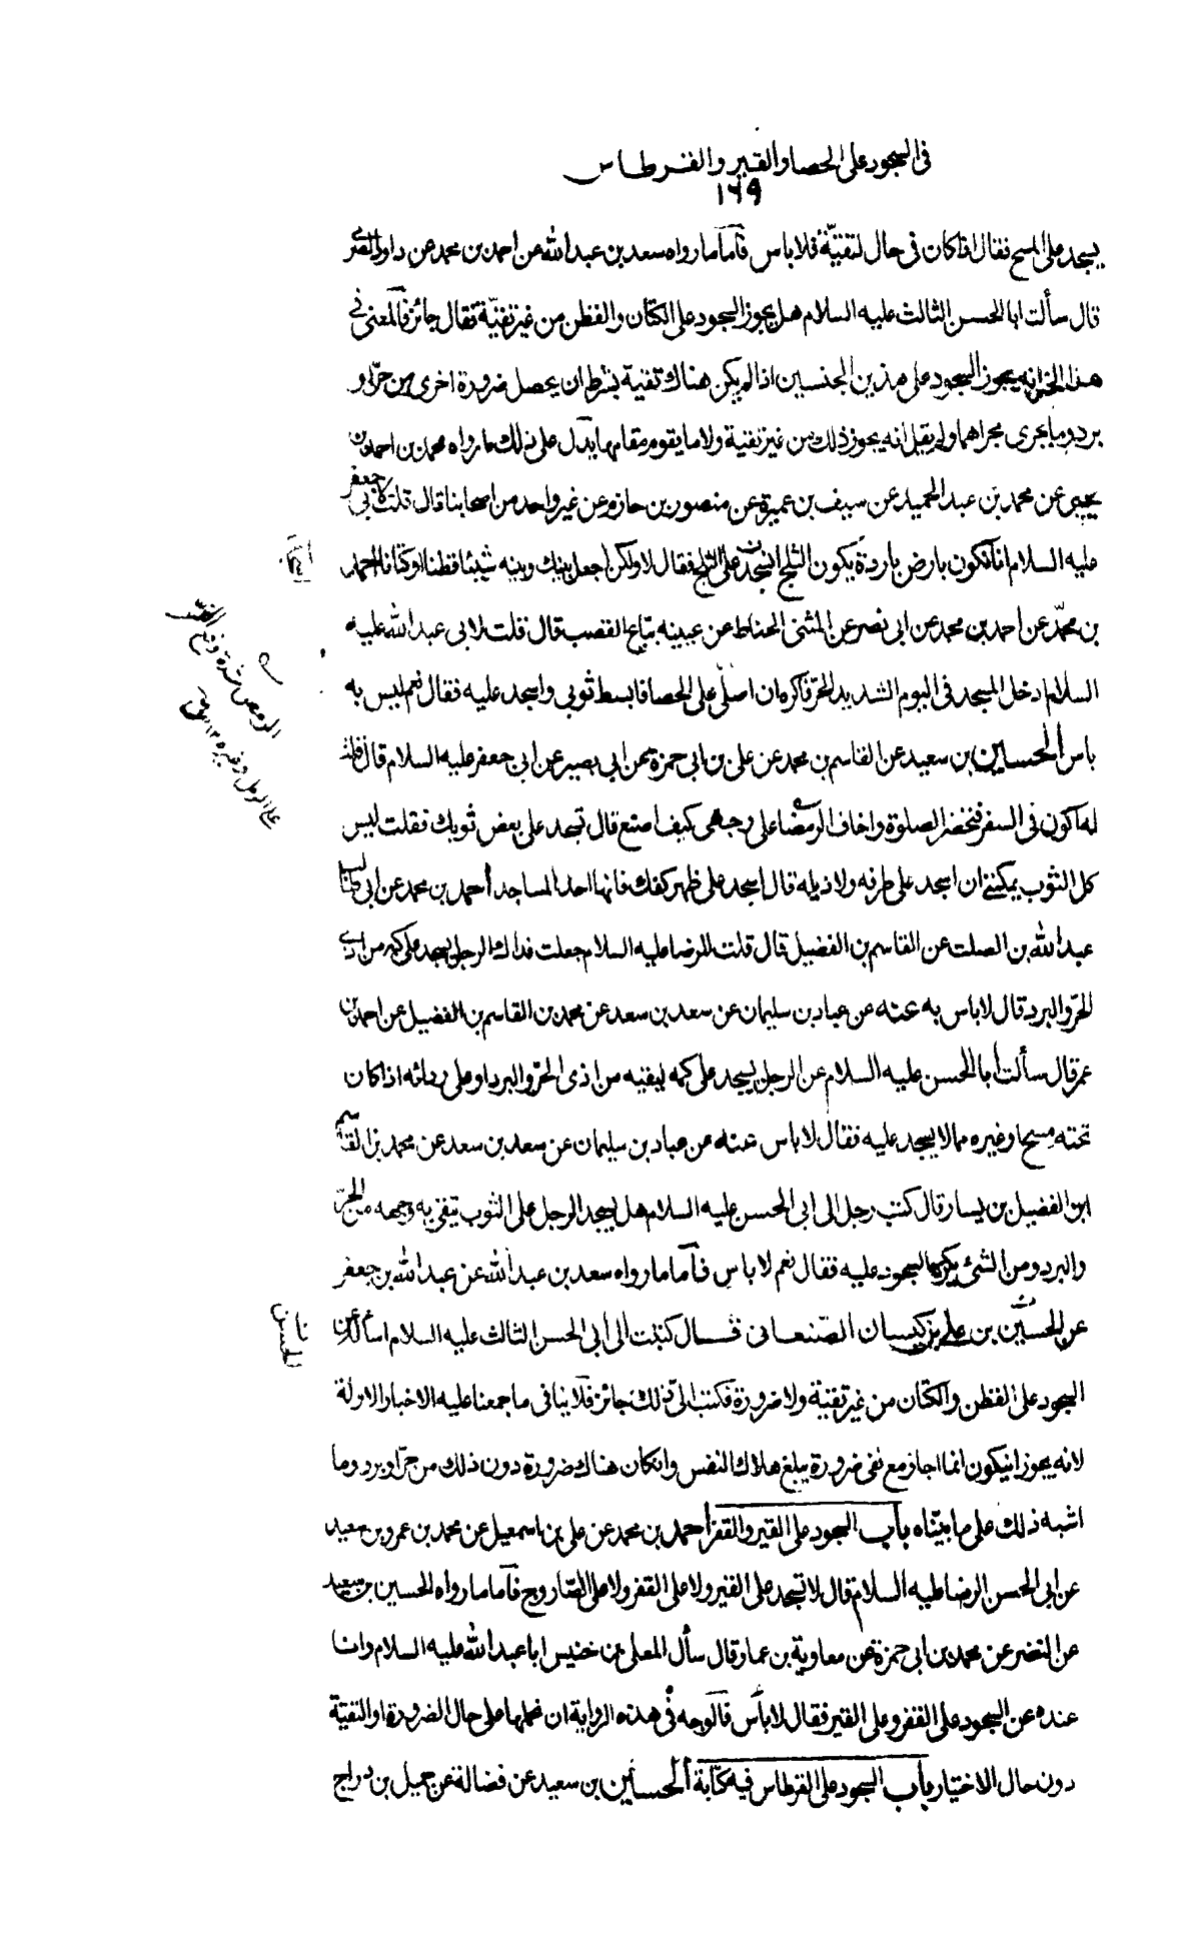 في السجود على الحصا والقير والقرطاس
١٦٩
يسجد على المسح فقال اذا كان في حال لتقيّة فلا باس فأما ما رواه سعد بن عبد الله عن احمد بن محمد عن داود الصرمي
قال سألت ابا الحسن الثالث عليه السلام هل يجوز السجود على الكتان والقطن من غير تقيّة فقال جائز فالمعنى في
هذا الخبر انه يجوز السجود على هذين الجنسين اذا لم يكن هناك تقية بشرط ان يحصل ضرورة اخرى من حرّ او
برد وما يجرى مجراهما ولم يقل انه يجوز ذلك من غير تقية ولا ما يقوم مقامها يدل على ذلك ما رواه محمد بن احمد بن
يحيى عن محمد بن عبد الحميد عن سيف بن عميرة عن منصور بن حازم عن غير واحد من اصحابنا قال قلت لابي جعفر
عليه السلام انا نكون بارض باردة يكون الثلج انسجد على الثلج فقال لا ولكن اجعل بينك وبينه شيئا قطنا او كتانا احمد
بن محمّد عن احمد بن محمد عن ابى نصر عن المثنى الحناط عن عيينه بيّاع القصب قال قلت لابى عبد الله عليه
السلام ادخل المسجد فى اليوم الشديد الحرّ فاكره ان اصلّى على الحصا فابسط ثوبى واسجد عليه فقال نعم ليس به
باس الحسين بن سعيد عن القاسم بن محمد عن على بن ابى حمزة عن ابى بصير عن ابى جعفر عليه السلام قال قلت
له اكون فى السفر فتحضر الصلوة واخاف الرمضا على وجهى كيف اصنع قال تسجد على بعض ثوبك فقلت ليس
كل الثوب يمكننى ان اسجد على طرفه ولا ذيله قال اسجد على ظهر كفك فانها احد المساجد أحمد بن محمد عن ابى طالب
عبد الله بن الصلت عن القاسم بن الفضيل قال قلت للرضا عليه السلام جعلت فداك الرجل يسجد على كمه من اذى
الحرّ والبرد قال لا باس به عنه عن عباد بن سليمان عن سعد بن سعد عن محمد بن القاسم بن الفضيل عن احمد بن
عمر قال سألت أبا الحسن عليه السلام عن الرجل يسجد على كمه ليقيه من اذى الحرّ والبرد او على ردائه اذا كان
تحته مسح او غيره مما لا يسجد عليه فقال لا باس عنه عن عباد بن سليمان عن سعد بن سعد عن محمد بن القاسم
ابن الفضيل بن يسار قال كتب رجل الى ابى الحسن عليه السلام هل يسجد الرجل على الثوب يتقى به وجهه من الحرّ
والبرد ومن الشئ يكره السجود عليه فقال نعم لا باس فأما ما رواه سعد بن عبد الله عن عبد الله بن جعفر
عن الحسين بن على بن كيسان الصّنعانى قال كتبت الى ابى الحسن الثالث عليه السلام اسأله عن
السجود على القطن والكتان من غير تقية ولا ضرورة فكتب الىّ ذلك جائز فلا ينافى ما جمعنا عليه الاخبار الاولة
لانه يجوز ان يكون انما اجاز مع نفى ضرورة يبلغ هلاك النفس وان كان هناك ضرورة دون ذلك من حرّ او برد وما
اشبه ذلك على ما بيّناه باب السجود على القير والقفر أحمد بن محمد عن على بن اسمعيل عن محمد بن عمرو بن سعيد
عن ابى الحسن الرضا عليه السلام قال لا تسجد على القير ولا على القفر ولا على الصّاروج فأما ما رواه الحسين بن سعيد
عن النضر عن محمد بن ابى حمزة عن معاوية بن عمار قال سأل المعلى بن خنيس ابا عبد الله عليه السلام وانا
عنده عن السجود على القفر وعلى القير فقال لا بأس فالوجه فى هذه الرواية ان نحملها على حال الضرورة او التقيّة
دون حال الاختيار باب السجود على القرطاس فيه كتابة الحسين بن سعيد عن فضالة عن جميل بن دراج
الحسن